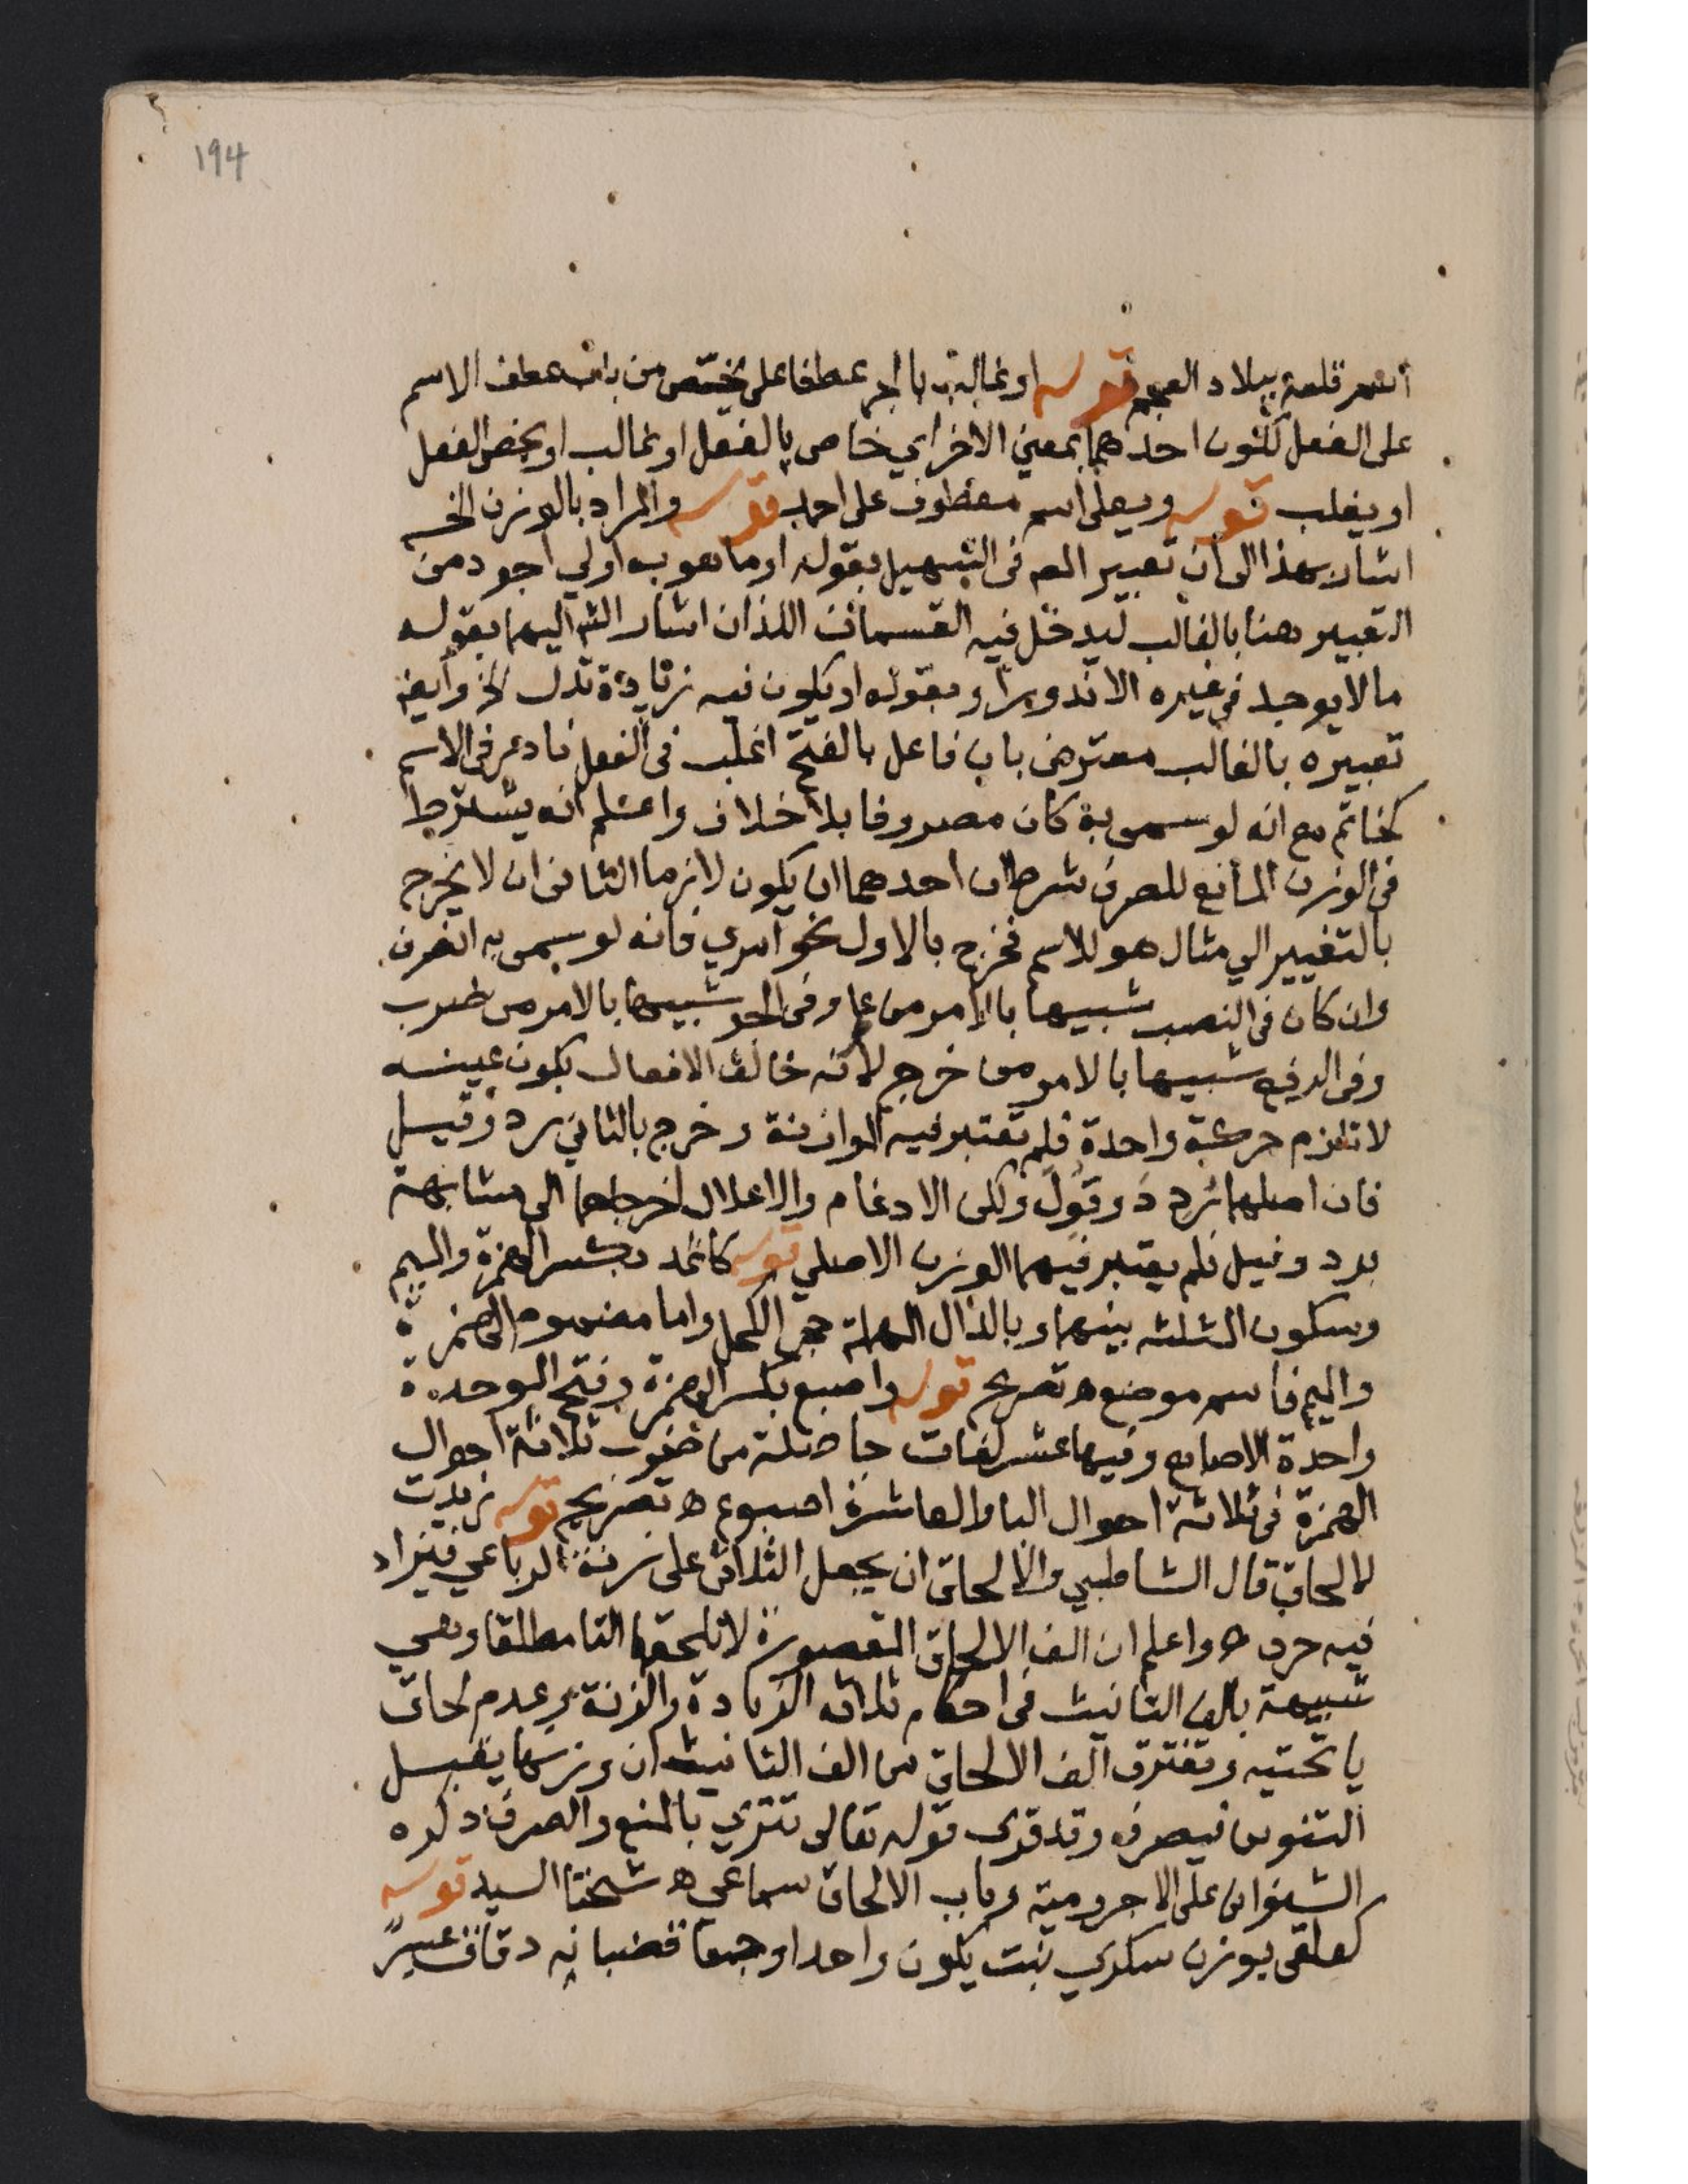 194
اسم قلعة ببلاد العجم قوله او غالب بالجر عطفا على يختص من باب عطف الاسم
على الفعل لكون احدهما بمعني الاخراي خاص بالفعل او غالب او يخص الفعل
او يغلب قوله ويعلى اسم معطوف على احمد قوله والمراد بالوزن الخ
اشار بهذا الى ان تعبير المص فى التسهيل بقوله او ما هو به اولي اجود من
التعبير هنا بالغالب ليدخل فيه القسمان اللذان اشار الش اليهما بقوله
ما لا يوجد في غيره الا ندورا وبقوله او يكون فيه زيادة تدل الخ وايضا
تعبيره بالغالب معترض باب فاعل بالفتح اغلب فى الفعل نادر فى الاسم
كخاتم مع انه لو سمى به كان مصروفا بلا خلاف واعلم انه يشترط
فى الوزن المانع للصرف شرطان احدهما ان يكون لازما الثانى ان لا يخرج
بالتغيير الي مثال هو للاسم فخرج بالاول نحو امري فانه لو سمى به انصرف
وان كان فى النصب شبيها بالامر من علم وفى الجر شبيها بالامر من ضرب
وفى الرفع شبيها بالامر من خرج لانه خالف الافعال بكون عينه
لا تلزم حركة واحدة فلم تعتبر فيه الموازنة وخرج بالثاني رد وقيل
فان اصلهما ردد وقول ولكن الادغام والاعلال اخرجاهما الى مشابهة
برد وفيل فلم يعتبر فيهما الوزن الاصلي قوله كاثمد بكسر الهمزة والميم
وسكون المثلثه بينهما وبالدال المهملة حجر الكحل واما مضموم الهمزة
والميم فاسم موضع ه تصريح قوله واصبع بكسر الهمزة وفتح الموحدة
واحدة الاصابع وفيها عشر لغات حاصلة من ضرب ثلاثة احوال
الهمزة فى ثلاثة احوال الباء والعاشرة اصبوع ه تصريح قوله زيدت
للالحاق قال الشاطبي والالحاق ان يجعل الثلاثى على زنة الرباعي فيزاد
فيه حرف ه واعلم ان الف الالحاق المقصورة لا تلحقها التا مطلقا وهي
شبيهة بالف التانيث فى احكام ثلاثه الزيادة والزنة وعدم لحاق
يا تحتيه وتفترق الف الالحاق من الف التانيث ان وزنها يقبل
التنوين فيصرف وقد قرى قوله تعالى تترى بالمنع والصرف ذكره
الشنوانى على الاجرومية وباب الالحاق سماعي ه شيخنا السيد قوله
كعلقى بوزن سكرى نبت يكون واحدا وجمعا قضبانه دقاق عسر